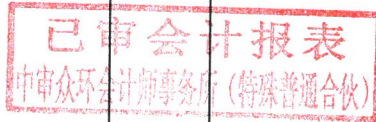 已审会计报表
中审众环会计师事务所（特殊普通合伙）